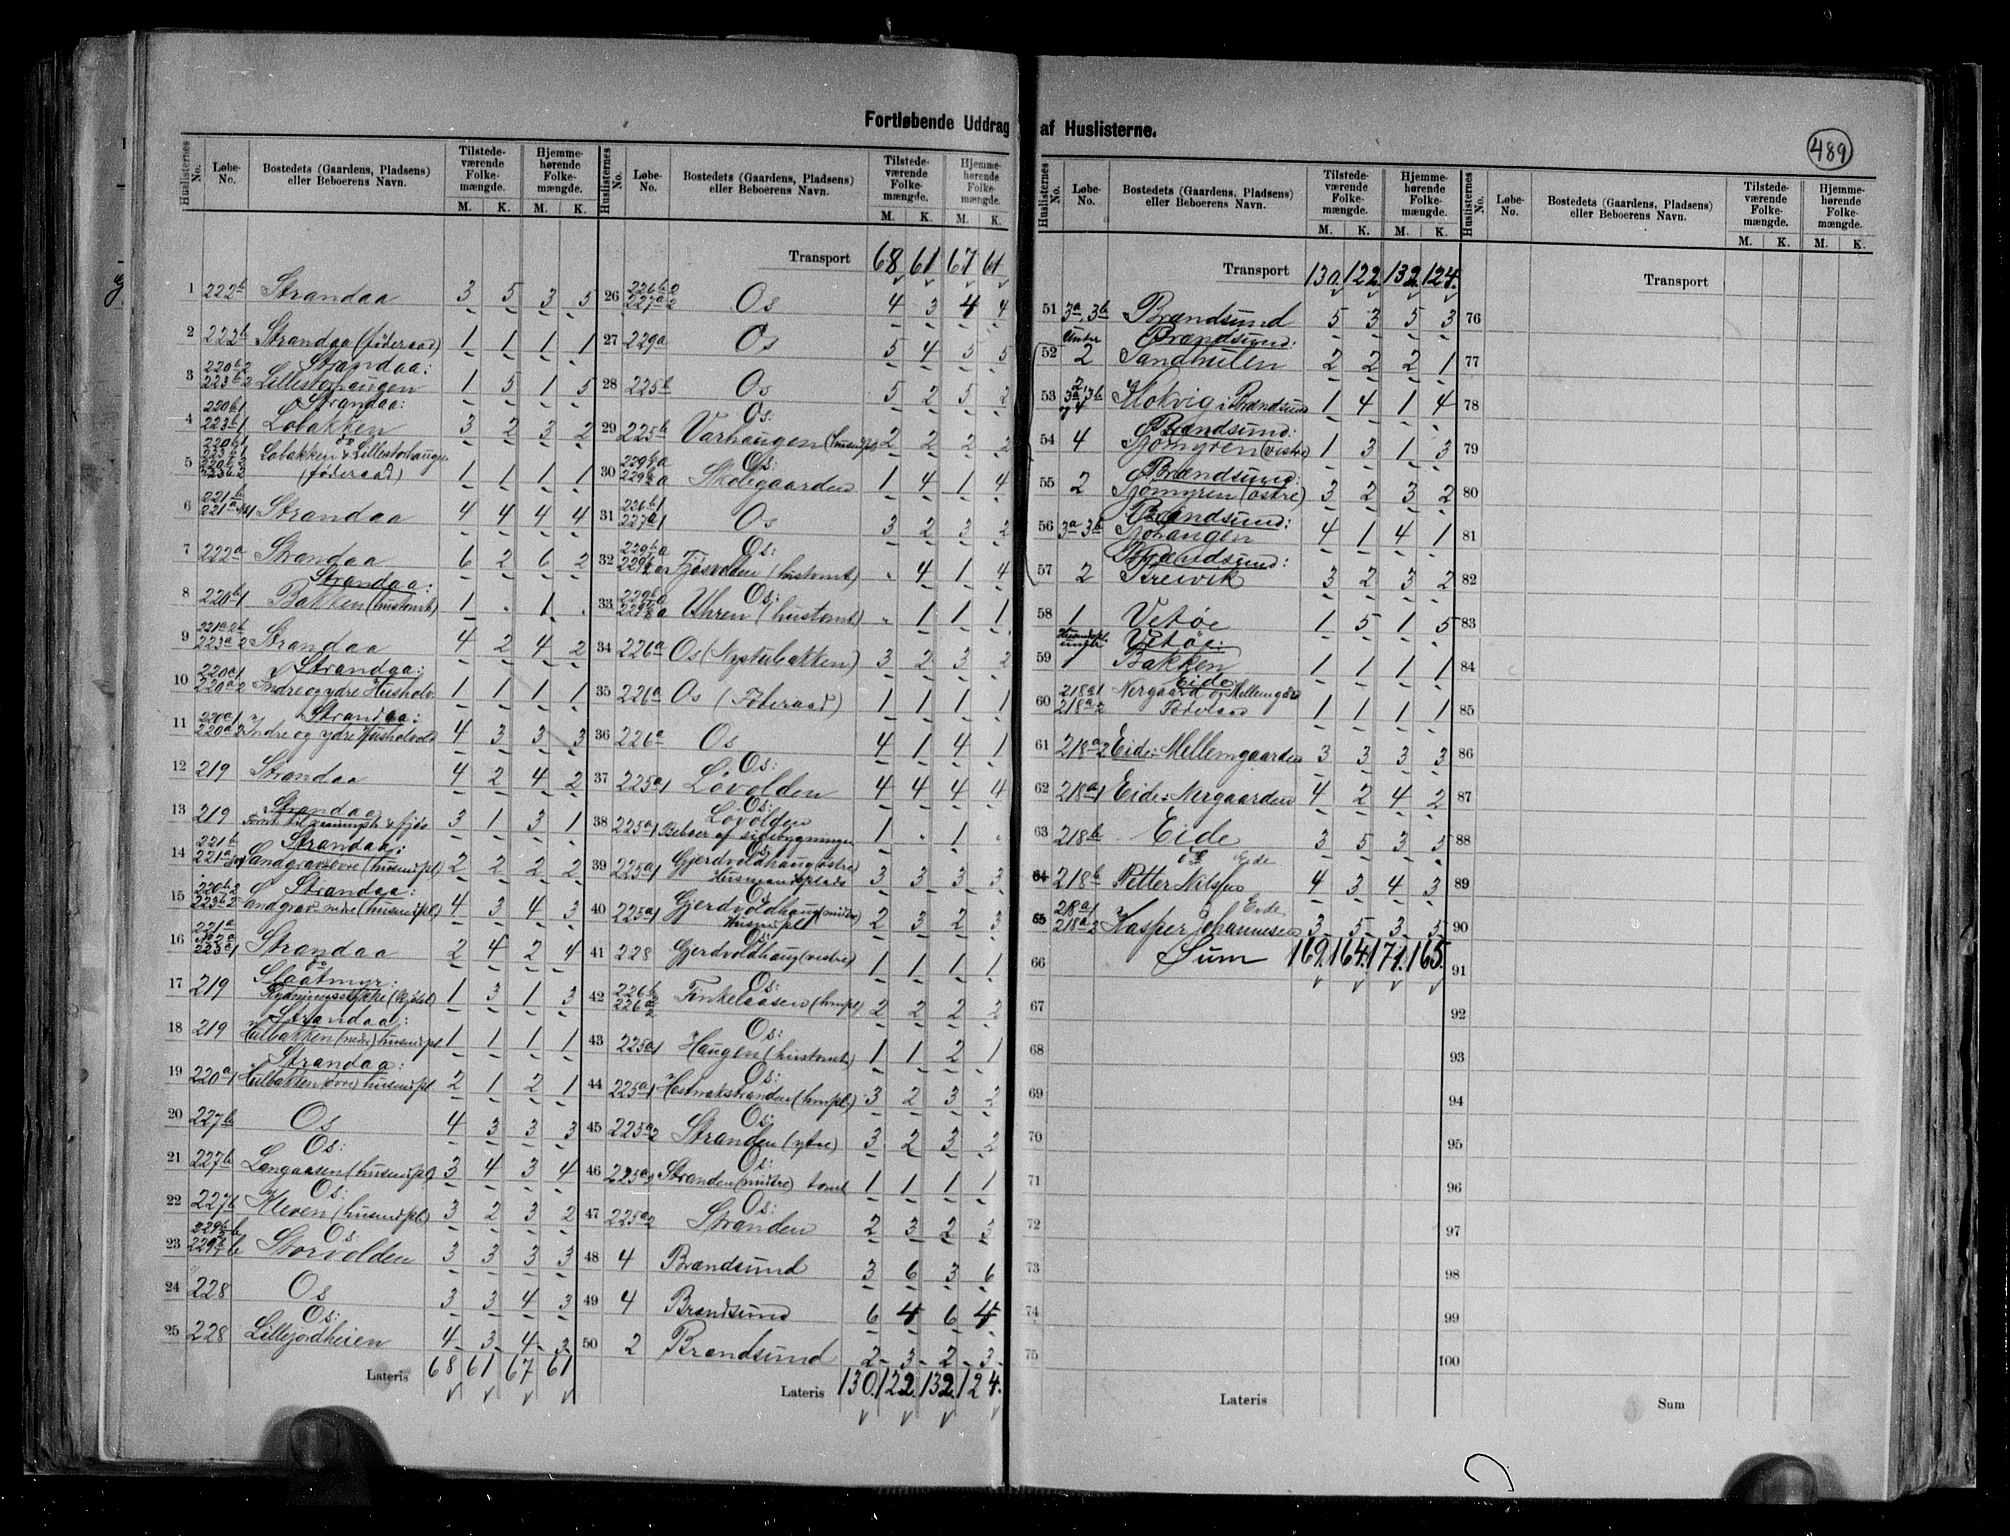 Fortløbende Uddrag af Huslisterne.
489
Huslisternes No. Løbe-No. Bostedets (Gaardens, Pladsens) eller Beboerens Navn. Tilstedeværende Folkemængde. M. K. Hjemmehørende Folkemængde. M. K.
1 222b Strandaa 3 5 3 5
2 223b Strandaa (føderaad) 1 1 1 1
Strandaa:
3 220b2 223b2 Lillestorhaugen 1 5 1 5
Strandaa:
4 220b1 223b1 Lobakken 3 2 3 2
5 220b1 223b1 220b2 223b2 Lobakken & Lillestorhaugen (føderaad) 1 1 1 1
6 221b 221a Strandaa 4 4 4 4
7 222a Strandaa 6 2 6 2
Strandaa:
8 220b1 Bakken (hustomt) 1 . 1 .
9 221a2b 223a2 Strandaa 4 2 4 2
Strandaa:
10 220a1 220a2 Indre og ydre Hushols 1 1 1 1
Strandaa:
11 220a1 220a2 Indre og ydre 4 3 3 3
12 219 Strandaa 4 2 4 2
Strandaa
13 219 3 1 3 1
Strandaa:
14 221b 221a Sandgrav øvre (husmdspl) 2 2 2 2
Strandaa:
15 220b2 223b2 Sandgrav nedre (husmdspl) 4 3 4 3
16 221a No 2a 223a1 Strandaa 2 4 2 4
do
Slaatmyr:
17 219 1 3 1 3
Strandaa:
18 219 Hulbakken (nedre) husmdspl 1 1 1 1
Strandaa:
19 220a1 Hulbakken (øvre) husmdspl 2 1 2 1
20 227b Os 4 3 3 3
Os:
21 227b Langaasen (husmdspl) 3 4 3 4
Os:
22 227b Kleven (husmdspl) 3 2 3 2
Os:
23 229b 229b Storvolden 3 3 3 3
24 228 Os 3 3 4 3
Os:
25 228 Lillejordheien 4 3 4 3
Lateris 68 61 67 61
Huslisternes No. Løbe-No. Bostedets (Gaardens, Pladsens) eller Beboerens Navn. Tilstedeværende Folkemængde. M. K. Hjemmehørende Folkemængde. M. K.
Transport 68 61 67 61
26 226b2 227a2 Os 4 3 4 4
27 229a Os 5 4 5 5
28 225b Os 5 2 5 2
Os:
29 225b Varhaugen (husmdspl) 2 2 2 2
Os:
30 229b1a 229b2a Skolegaarden 1 4 1 4
31 226b1 227a1 Os 3 2 3 2
Os:
32 229b1a 229b2a Fjøsvolden (hustomt) . 4 1 4
Os:
33 229b1a 229b2a Uhren (hustomt) . 1 1 1
34 226a Os (Nystubakken) 3 2 3 2
35 226a Os (Føderaad) 1 1 1 1
36 226a Os 4 1 4 1
Os:
37 225a1 Løvolden 4 4 4 4
Os:
Løvolden
38 225a1 Beboer af sidebygningen 1 . 1 .
Os:
39 225a1 Gjerdvoldhaug (østre) Husmandsplads 3 3 3 3
Os:
40 225a1 Gjerdvoldhaug (midtre) Husmdspl 2 3 2 3
Os:
41 228 Gjerdvoldhaug (vestre) 1 1 1 1
Os:
42 226b 226a2 Finkelaasen (hmpl) 2 2 2 2
Os:
43 225a1 Haugen (hustomt) 1 1 2 1
Os:
44 225a1 Hestnakstranden (hmpl) 3 2 3 2
Os:
45 225a2 Stranden (ytre) 3 2 3 2
Os:
46 225a2 Stranden (midtre) tomt 1 1 1 1
Os:
47 225a2 Stranden 2 3 2 3
48 4 Brandsund 3 6 3 6
49 4 Brandsund 6 4 6 4
50 2 Brandsund 2 3 2 3
Lateris 130 122 132 124
Huslisternes No. Løbe-No. Bostedets (Gaardens, Pladsens) eller Beboerens Navn. Tilstedeværende Folkemængde. M. K. Hjemmehørende Folkemængde. M. K.
Transport 130 122 132 124
51 3a, 3b Brandsund 5 3 5 3
Brandsund:
52 under 2 Sandhulen 2 2 2 1
53 2, 3a, 3b og 4 Klokvig i Brandsund 1 4 1 4
Brandsund:
54 4 Tjømyren (vestre) 1 3 1 3
Brandsund:
55 2 Tjømyren (østre) 3 2 3 2
Brandsund:
56 3a 3b 4 1 4 1
Brandsund:
57 2 Kreivik 3 2 3 2
58 1 Vetøe 1 5 1 5
Vetøe:
59 Husmdspl under 1 Bakken 1 1 1 1
Eide:
60 218a1 218a2 Nergaard og Mellemgård Føderaad 1 1 1 1
61 218a2 Eide: Mellemgaarden 3 3 3 3
62 218a1 Eide: Nergaarden 4 2 4 2
63 218b Eide 3 5 3 5
Eide
64 218b Petter Nilsen 4 3 4 3
Eide
65 218a1 218a2 Kasper Johannesen 3 5 3 5
66 Sum 169 164 171 165
67
68
69
70
71
72
73
74
75
Lateris
Huslisternes No. Løbe-No. Bostedets (Gaardens, Pladsens) eller Beboerens Navn. Tilstedeværende Folkemængde. M. K. Hjemmehørende Folkemængde. M. K.
Transport
76
77
78
79
80
81
82
83
84
85
86
87
88
89
90
91
92
93
94
95
96
97
98
99
100
Sum